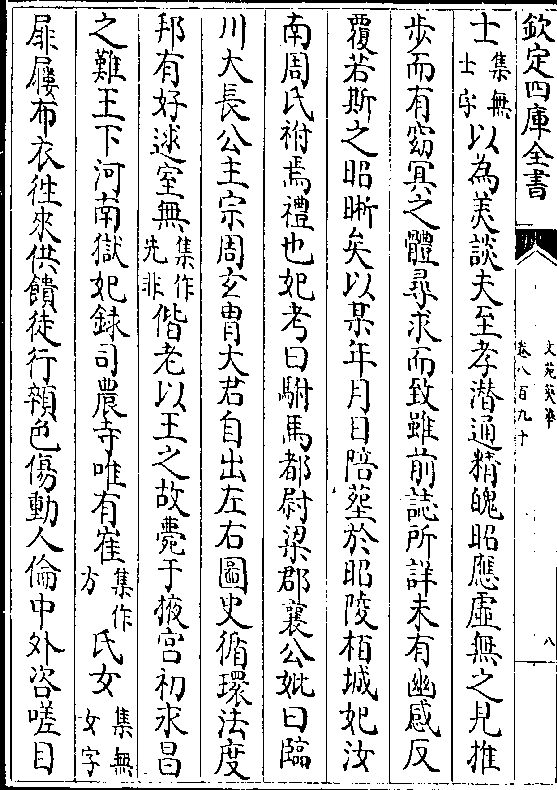 欽定四庫全書
文苑英華
卷八百九十
八
士集無士字以為美談夫至孝潜通精魄昭應虚無之見推
歩而有窈冥之體尋求而致雖前誌所詳未有幽感反
覆若斯之昭晰矣以某年月日陪塟於昭陵栢城妃汝
南周氏祔焉禮也妃考曰駙馬都尉梁郡襄公妣曰臨
川大長公主宗周玄胄大君自出左右圖史循環法度
邦有好逑室無集作先非偕老以王之故薨于掖宫初永昌
之難王下河南獄妃錄司農寺唯有崔集作方氏女集無女字
扉屨布衣徃來供饋徒行頩色傷動人倫中外咨嗟目